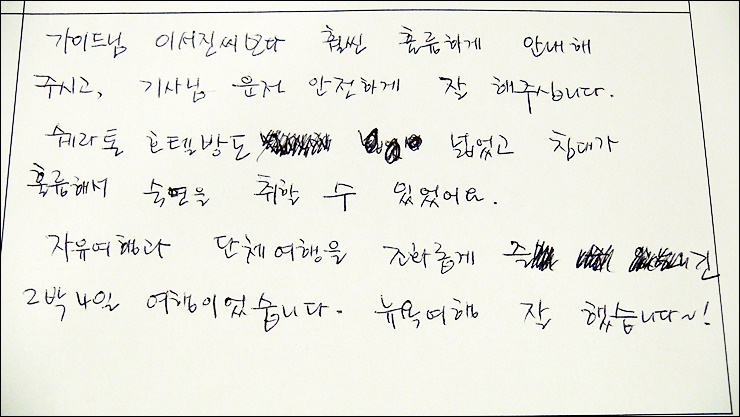 가이드님 이서진씨보다 훨씬 훌륭하게 안내해
주시고, 기사님 운저 안전하게 잘 해주십니다.
쉐라톤 호텔방도 넓었고 침대가
훌륭해서 숙면을 취할 수 있었어요.
자유여행과 단체여행을 조화롭게 즈 진
2박4일 여행이었습니다. 뉴욕여행 잘 했습니다~!